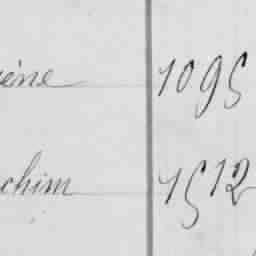 ène 1095
chim 1512